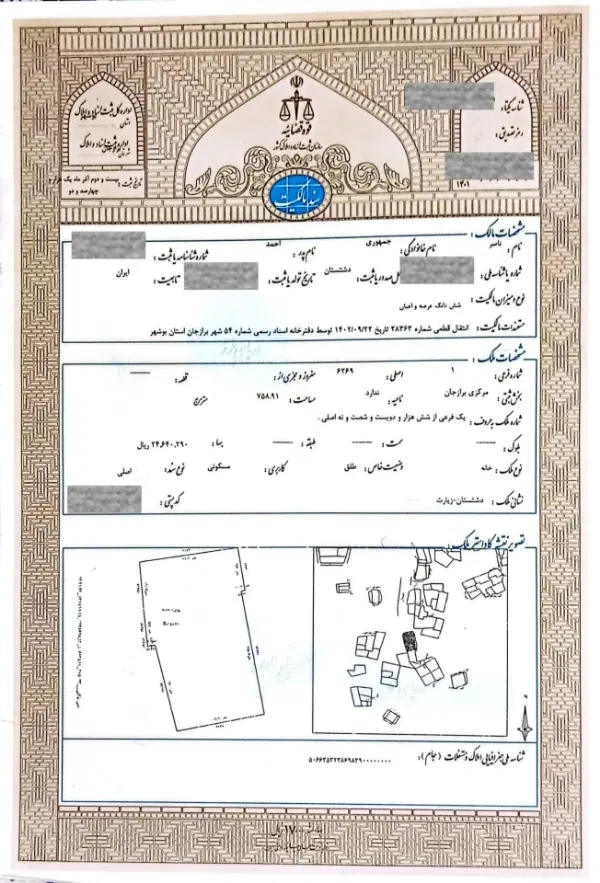 اداره کل ثبت اسناد و املاک
استان
قوه قضائیه
سازمان ثبت اسناد و املاک کشور
شناسه یکتا :
رمز تصدیق :
۱۴۰۱
تاریخ ثبت : بیست و دوم آذر ماه یک هزار و چهارصد و دو
سند مالکیت
مشخصات مالک :
نام : ناصر نام خانوادگی : جمهوری نام پدر : احمد شماره شناسنامه یا ثبت :
شماره یا شناسه ملی : محل صدور یا ثبت : دشتستان تاریخ تولد یا ثبت : تابعیت : ایران
نوع و میزان مالکیت : شش دانگ عرصه و اعیان
مستندات مالکیت : انتقال قطعی شماره ۲۸۳۶۳ تاریخ ۱۴۰۲/۰۹/۲۲ توسط دفترخانه اسناد رسمی شماره ۵۴ شهر برازجان استان بوشهر
مشخصات ملک :
شماره فرعی : ۱ اصلی : ۶۲۶۹ مفروز و مجزی از : قطعه :
بخش ثبتی : مرکزی برازجان ناحیه : ندارد مساحت : ۷۵۸.۹۱ مترمربع
شماره ملک به حروف : یک فرعی از شش هزار و دویست و شصت و نه اصلی .
بلوک : سمت : طبقه : بها : ۲۴,۶۴۰,۲۹۰ ریال
نوع ملک : خانه وضعیت خاص : طلق کاربری : مسکونی نوع سند : اصلی
نشانی ملک : دشتستان-زیارت کد پستی :
تصویر نقشه کاداستر ملک :
N
شناسه ملی جغرافیایی املاک و مستغلات ( جام ) : ۵۰۶۶۲۵۳۲۲۸۶۹۸۲۹۰۰۰۰۰۰۰۰